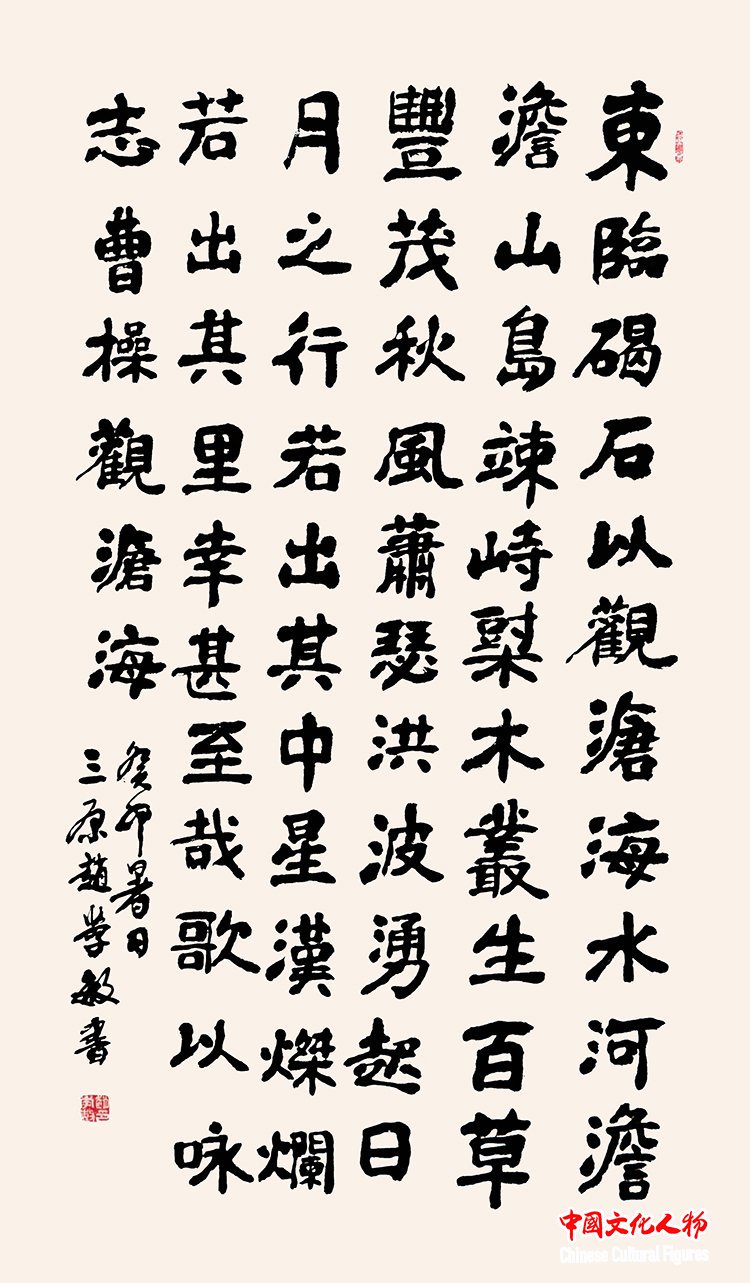 東臨碣石以觀滄海水河澹
澹山島竦峙樹木叢生百草
豐茂秋風蕭瑟洪波湧起日
月之行若出其中星漢燦爛
若出其里幸甚至哉歌以咏
志曹操觀滄海
癸卯暑日
三原趙學敏書
中國文化人物
Chinese Cultural Figures